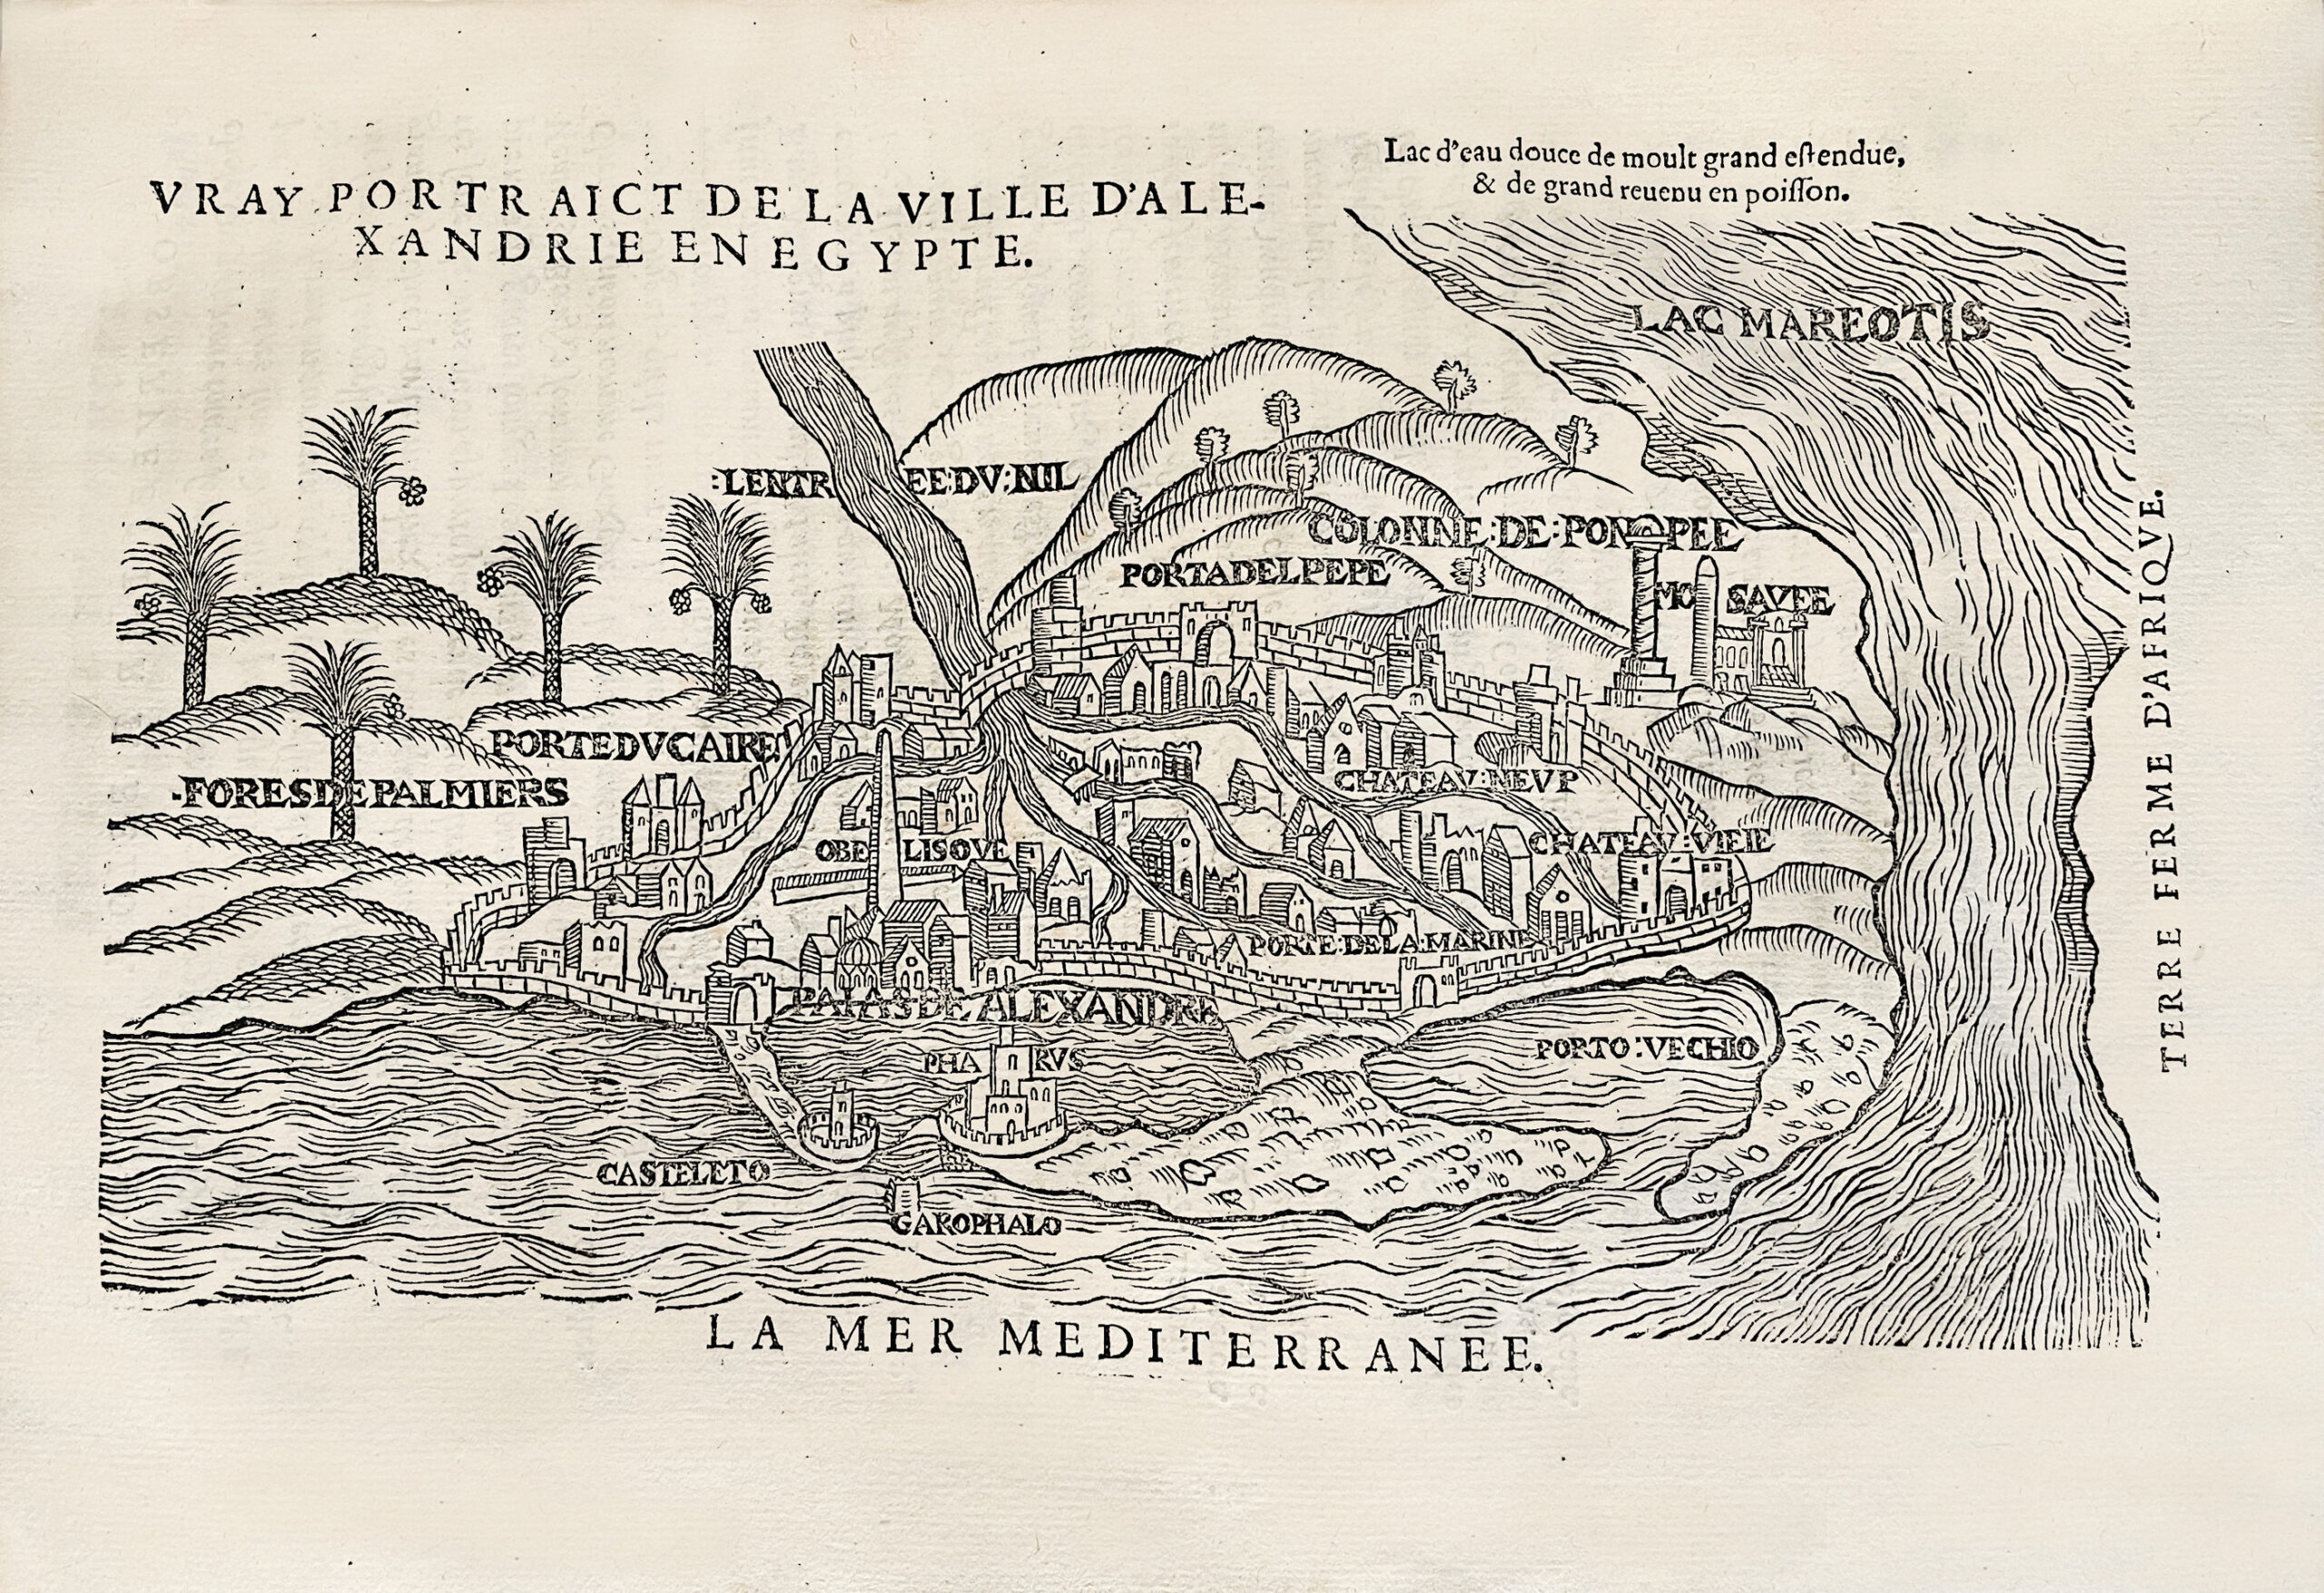 VRAY PORTRAICT DE LA VILLE D'ALE-
XANDRIE EN EGYPTE.
Lac d'eau douce de moult grand eſtendue,
& de grand reuenu en poiſſon.
LAC MAREOTIS
:LENTREE:DV:NIL
COLONNE:DE:POMPEE
PORTADELPEPE
MOSAVEE
PORTEDVCAIRE
-FORESDEPALMIERS
CHATEAV:NEVP
OBELISQVE
CHATEAV:VIEIE
PORTE:DELA:MARINE
PALASDE ALEXANDRE
PHARVS
PORTO:VECHIO
CASTELETO
GAROPHALO
LA MER MEDITERRANEE.
TERRE FERME D'AFRIQVE.